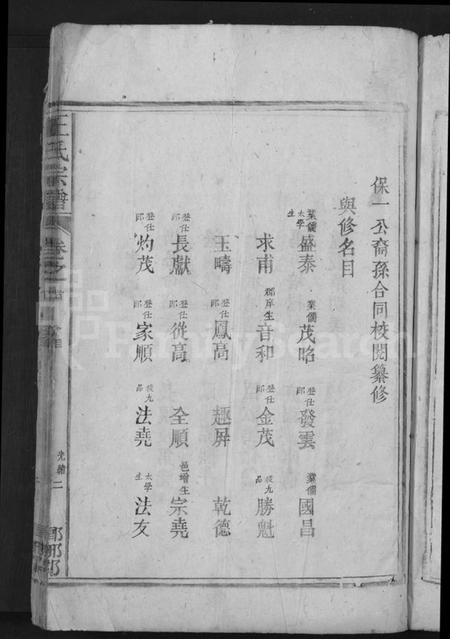 保一公裔孫合同校閱纂修
與修名目
業儒太學生 盛泰 業儒 茂略 登仕郎 發雲 業儒 國昌
求甫 郡庠生 音和 登仕郎 金茂 從九品 勝魁
玉疇 登仕郎 鳳高 趣屏 乾德
登仕郎 長獻 登仕郎 從高 全順 邑增生 宗堯
登仕郎 灼茂 登仕郎 家順 從九品 法堯 太學生 法友
王氏宗譜
卷之
光緒二
FamilySearch